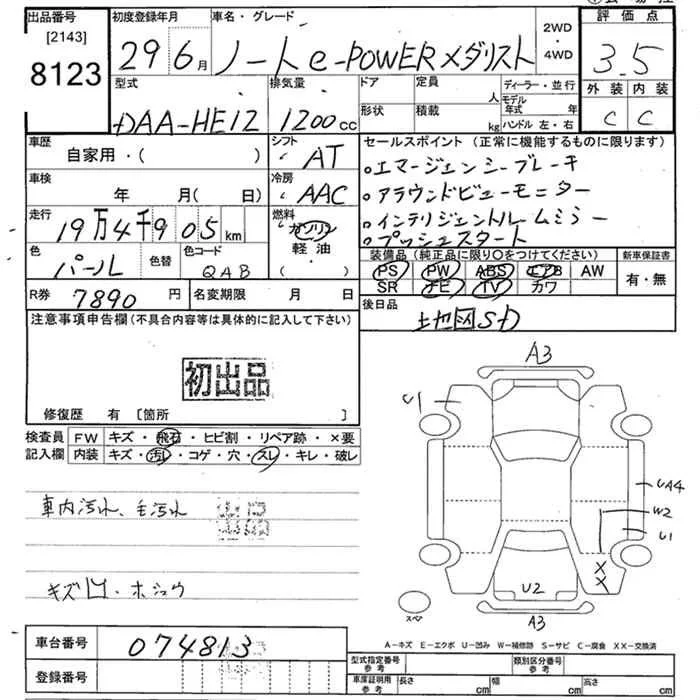 出品番号 初度登録年月 車名・グレード 2WD・4WD 評価点
[2143]
8123 29 6月 ノートe-POWERメダリスト 3.5
外装 内装
C C
型式 排気量 ドア 定員 人 ディーラー・並行
DAA-HE12 1200cc 形状 積載 kg モデル年式 年
ハンドル 左・右
車歴 シフト セールスポイント (正常に機能するものに限ります)
自家用・( ) AT ・エマージェンシーブレーキ
車検 冷房 ・アラウンドビューモニター
年 月(日) AAC ・インテリジェントルームミラー
走行 燃料 ・プッシュスタート
19万4千905km ガソリン
軽油・( )
色 色替 色コード 装備品 (純正品に限り○をつけてください) 新車保証書
パール QAB PS PW ABS エアB AW 有・無
SR ナビ TV カワ
R券 7890円 名変期限 月 日 後日品
地図SD
注意事項申告欄(不具合内容等は具体的に記入して下さい)
初出品
修復歴 有 [箇所 ]
検査員 FW キズ・飛石・ヒビ割・リペア跡・×要
記入欄 内装 キズ・汚レ・コゲ・穴・スレ・キレ・破レ
車内汚れ、毛汚れ
キズ凹・ホシュウ
A3
U1
UA4
W2
U1
XX
U2
スペア
A3
A-キズ E-エクボ U-凹み W-補修跡 S-サビ C-腐食 XX-交換済
車台番号 074813 型式指定番号 参考 類別区分番号 参考
登録番号 車庫証明用 参考 長さ cm 幅 cm 高さ cm